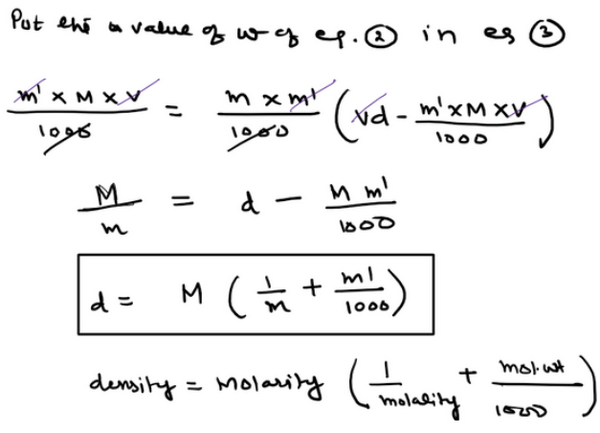 Put the value of w of eq. ② in eq ③
m' × M × V / 1000 = m × m' / 1000 ( Vd - m' × M × V / 1000 )
M / m = d - M m' / 1000
d = M ( 1 / m + m' / 1000 )
density = Molarity ( 1 / molality + mol. wt / 1000 )